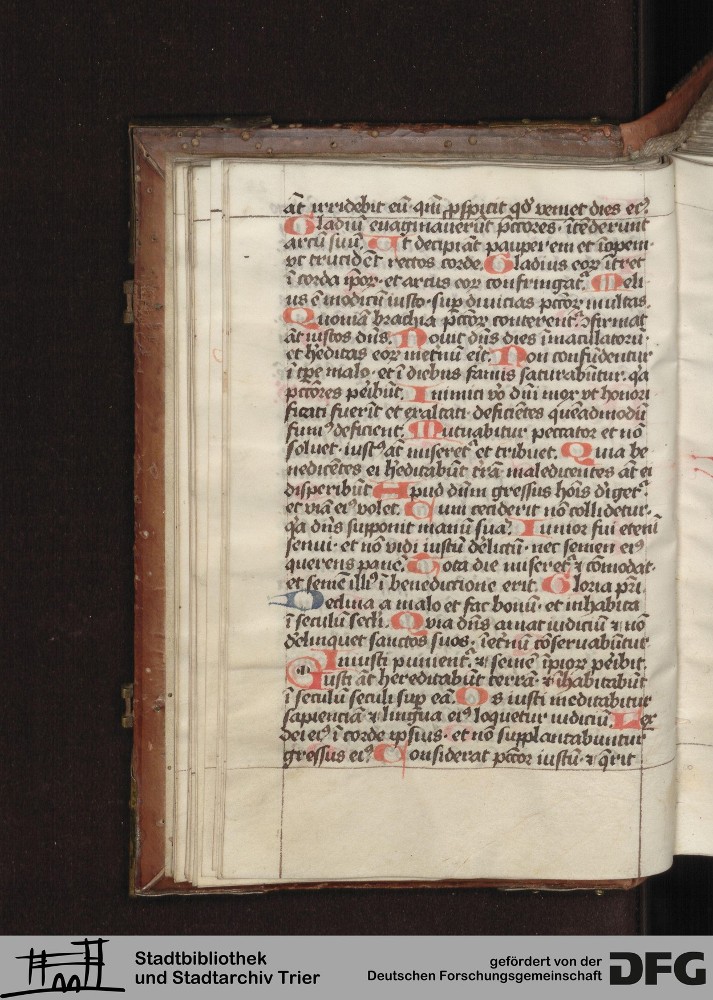 aūt irridebit eū· qm̄ ꝓspicit qd̄ veniet dies eiꝰ
Gladiū euaginauerūt pc̄tores· ītēderunt
arcū suū. Ut decipiāt pauperem et īopem·
vt trucidēt rectos corde. Gladius eoꝝ ītret
ī corda ip̄oꝝ· et arcus eoꝝ confringat᷑. Meli
us ē modicū iusto· sup diuicias pc̄coꝝ multas.
Quoniā brachia pc̄coꝝ conterent᷑· ꝯfirmat
aūt iustos dn̄s. Nouit dn̄s dies īmaculatorū·
et h̄editas eoꝝ ī et̄nū eit. Non confūdentur
ī tp̄e malo· et ī diebus famis saturabūtur· qa
pc̄tores peibūt. Inimici vo dn̄i mox vt honori
ficati fuerīt et exaltati· deficiētes quēadmodū
fumꝰ deficient. Mutuabitur peccator et nō
soluet· iustꝰ aūt miseret᷑ et tribuet. Quia be
nedicētes ei h̄editabūt trā· maledicentes aūt ei
disperibūt Apud dn̄m gressus hoīs dirīget᷑·
et viā eiꝰ volet. Cum ceciderit nō collidetur·
qa dn̄s supponit manū suā. Iunior fui etenī
senui· et nō vidi iustū d̄elictū· nec semen eiꝰ
querens panē. Tota die miseret᷑ ⁊ cōmodat·
et semē illiꝰ ī benedictione erit. Gloria pr̄i
Declina a malo et fac bonū· et inhabita
ī seculū sc̄li. Quia dn̄s amat iudiciū ⁊ nō
d̄elinquet sanctos suos· ī et̄nū cōseruabūtur
Iniusti punient᷑· ⁊ semē īpioꝝ peibit.
Iusti aūt hereditabūt terrā· ⁊ īhabitabūt
ī seculū seculi sup eā. Os iusti meditabitur
sapientiā ⁊ lingua eiꝰ loquetur iudiciū. Lex
dei eiꝰ ī corde ipsius· et nō supplantabuntur
gressus eiꝰ Considerat pc̄coꝝ iustū· ⁊ q̄rit
Stadtbibliothek
und Stadtarchiv Trier
gefördert von der
Deutschen Forschungsgemeinschaft
DFG